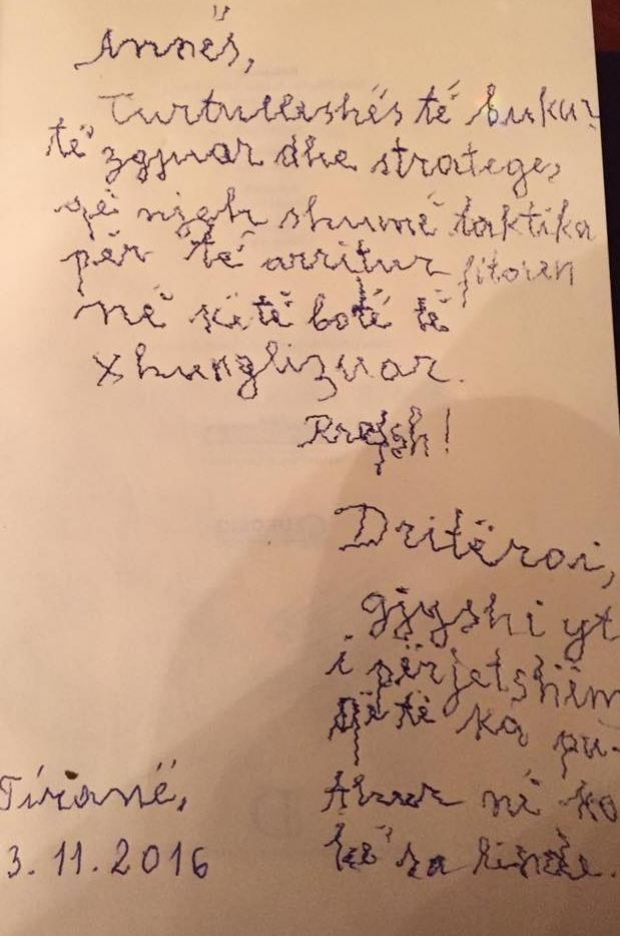 Annës,
Turtulleshës të buku
të zgjuar dhe stratege,
që njeh shumë taktika
për të arritur fitoren
në këtë botë të
xhunglizuar.
Rrofsh!
Dritëroi,
gjyshi yt
i përjetshëm
që të ka pu-
thur në ko
kë sa linde.
Tiranë,
3.11.2016